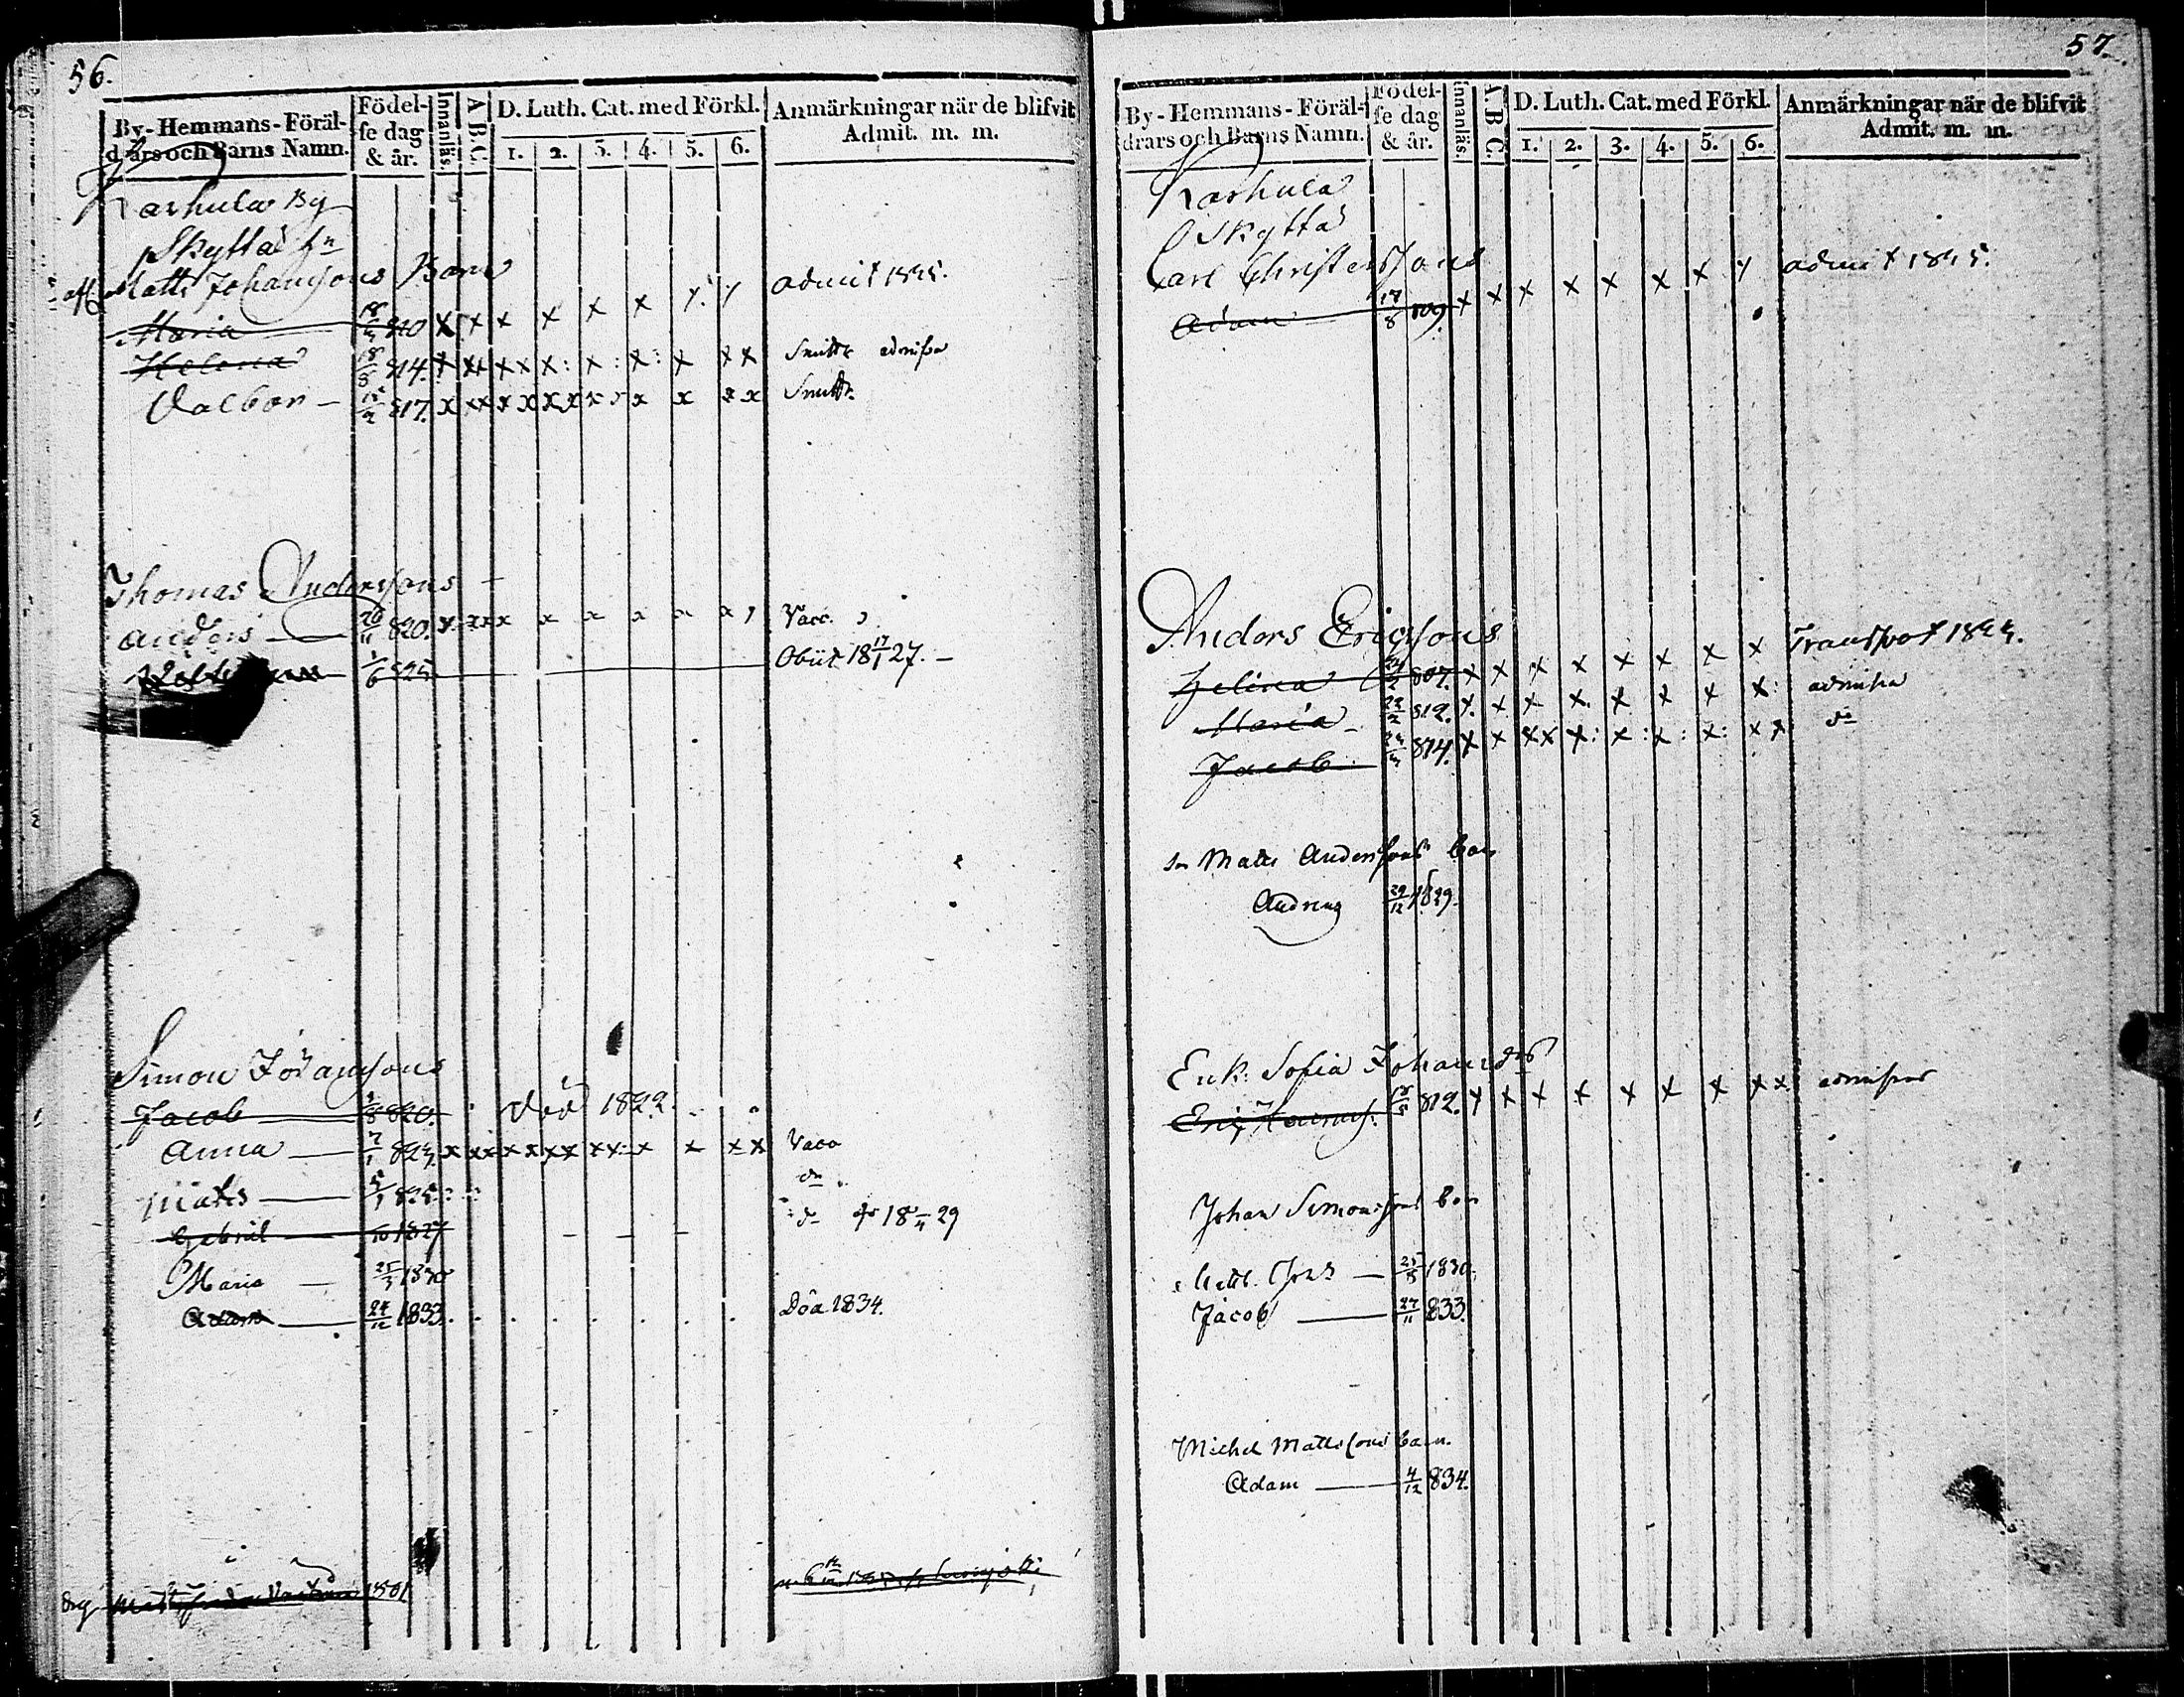 56.
By-Hemmans-Föräl-
drars och Barns Namn.
Födel-
se dag
& år.
Innanläs.
A B C.
D. Luth. Cat. med Förkl.
1. 2. 3. 4. 5. 6.
Anmärkningar när de blifvit
Admit. m. m.
Karhula By
Skyttä hn
Matts Johanssons Barn
Maria 810 x x x x x x admit 1825.
Helena 18/8 814. x xx xx x: x: x: x xx Smitt admissa
Valbor 817. x xx xx xx x x x xx Smitt.
Thomas Anderssons
Anders 20/11 820. x xxx x x x x x Vacc.
1/6 825 Obiit 18 17/1 27.
Simon Johanssons
Jacob 8 820. död 1822
Anna 7/1 823. x xx xx xx xx x x xx Vacc
Matts dn
Gabriel 10 1827 dn 18 /4 29
Maria 25/3 1830
Adam 24/12 1833. Döa 1834.
1801
57.
By-Hemmans-Föräl-
drars och Barns Namn.
Födel-
se dag
& år.
Innanläs.
A B C.
D. Luth. Cat. med Förkl.
1. 2. 3. 4. 5. 6.
Anmärkningar när de blifvit
Admit. m. m.
Karhula
Skyttä
Carl Christerssons
Adam 17/8 809. x x x x x x x admit 1825.
Anders Ericssons
Helena 807. x x x x x x x x Transport
Maria 22/2 812. x. x. x x. x x x x: admissa
Jacob 814. x x xx x: x: x: x: xx dn
Sn Matts Anderssons barn
Andreas 29/12 1829.
Enk. Sofia Johansdr
Eric 18/5 812. x x x x x x x xx admissus
Johan Simonssons barn
25/5 1830.
Jacob 27/11 833.
Michel Mattssons barn.
Adam 4/12 834.